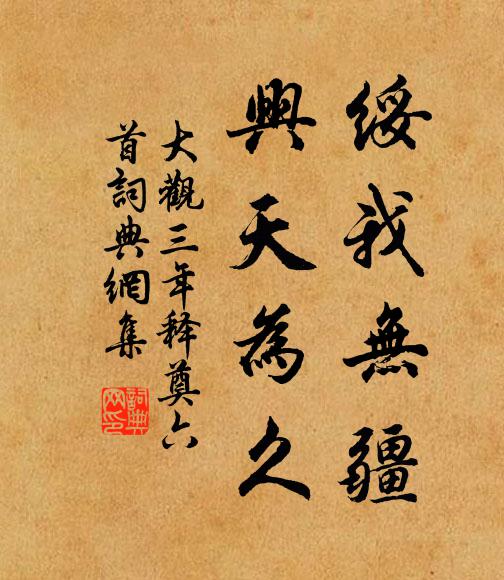 綏我無疆
興天為久
大觀三年释奠六
首詞典網集
詞典
网印